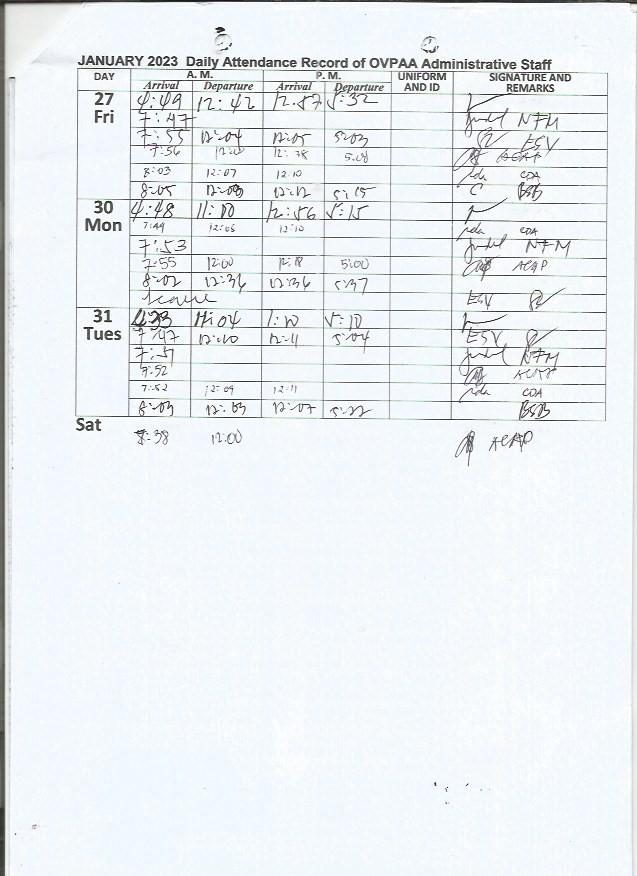 JANUARY 2023 Daily Attendance Record of OVPAA Administrative Staff
DAY A. M. P. M. UNIFORM AND ID SIGNATURE AND REMARKS
Arrival Departure Arrival Departure
27 Fri
4:49 12:42 12:57 5:32
7:47 NFM
7:55 12:04 12:05 5:03 ESV
7:56 12:38 5:08 ACAP
8:03 12:07 12:10 CDA
8:05 12:12 5:15 BSB
30 Mon
4:48 11:10 12:56 5:15
7:49 12:05 12:10 CDA
7:53 NFM
7:55 12:00 12:18 5:00 ACAP
8:02 12:36 12:36 5:37
ESV
31 Tues
11:04 1:10 5:10
7:47 12:10 12:11 5:04 ESV
7:51 NFM
7:52 ACAP
7:52 12:09 12:11 CDA
8:03 12:03 12:07 5:22 BSB
Sat
8:38 12:00 ACAP